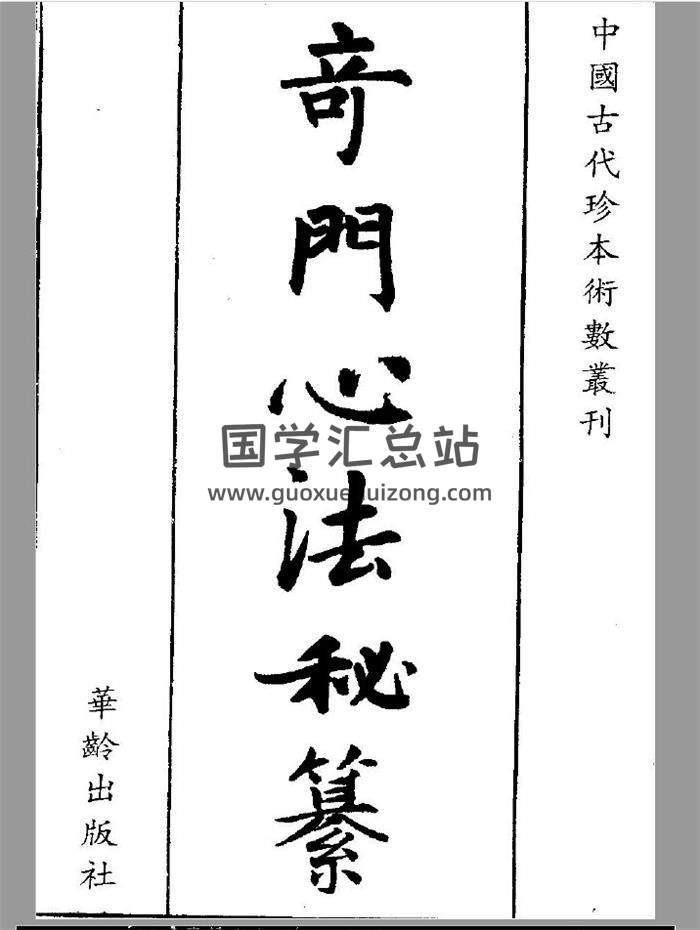 中國古代珍本術數叢刊
奇門心法秘纂
華齡出版社
国学汇总站
www.guoxuehuizong.com